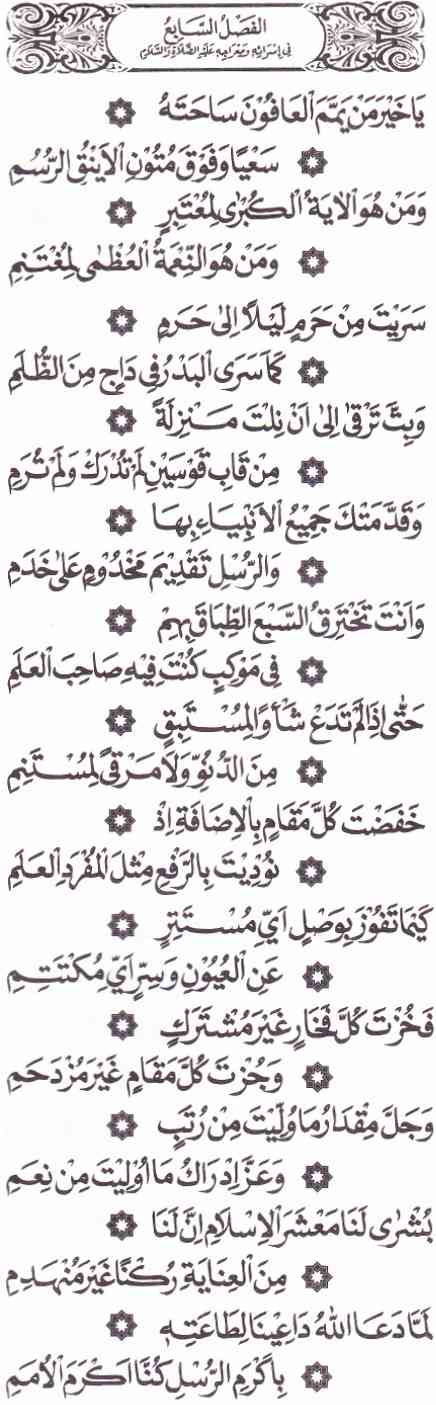 الفَصْلُ السَّابِعُ
فِي إِسْرَائِهِ وَمِعْرَاجِهِ عَلَيْهِ الصَّلَاةُ وَالسَّلَامُ
يَا خَيْرَ مَنْ يَمَّمَ الْعَافُونَ سَاحَتَهُ
سَعْيًا وَفَوْقَ مُتُونِ الْأَيْنُقِ الرُّسُمِ
وَمَنْ هُوَ الْاٰيَةُ الْكُبْرٰى لِمُعْتَبِرٍ
وَمَنْ هُوَ النِّعْمَةُ الْعُظْمٰى لِمُغْتَنِمِ
سَرَيْتَ مِنْ حَرَمٍ لَيْلًا اِلٰى حَرَمٍ
كَمَا سَرَى الْبَدْرُ فِي دَاجٍ مِنَ الظُّلَمِ
وَبِتَّ تَرْقٰى اِلٰى اَنْ نِلْتَ مَنْزِلَةً
مِنْ قَابِ قَوْسَيْنِ لَمْ تُدْرَكْ وَلَمْ تُرَمِ
وَقَدَّمَتْكَ جَمِيعُ الْاَنْبِيَاءِ بِهَا
وَالرُّسْلِ تَقْدِيمَ مَخْدُومٍ عَلٰى خَدَمِ
وَاَنْتَ تَخْتَرِقُ السَّبْعَ الطِّبَاقَ بِهِمْ
فِي مَوْكِبٍ كُنْتَ فِيهِ صَاحِبَ الْعَلَمِ
حَتّٰى اِذَا لَمْ تَدَعْ شَأْوًا لِمُسْتَبِقٍ
مِنَ الدُّنُوِّ وَلَا مَرْقًى لِمُسْتَنِمِ
خَفَضْتَ كُلَّ مَقَامٍ بِالْاِضَافَةِ اِذْ
نُودِيْتَ بِالرَّفْعِ مِثْلَ الْمُفْرَدِ الْعَلَمِ
كَيْمَا تَفُوْزَ بِوَصْلٍ اَيِّ مُسْتَتِرٍ
عَنِ الْعُيُوْنِ وَسِرٍّ اَيِّ مُكْتَتِمِ
فَحُزْتَ كُلَّ فَخَارٍ غَيْرَ مُشْتَرَكٍ
وَجُزْتَ كُلَّ مَقَامٍ غَيْرَ مُزْدَحَمِ
وَجَلَّ مِقْدَارُ مَا وُلِّيْتَ مِنْ رُتَبٍ
وَعَزَّ اِدْرَاكُ مَا اُوْلِيْتَ مِنْ نِعَمِ
بُشْرٰى لَنَا مَعْشَرَ الْاِسْلَامِ اِنَّ لَنَا
مِنَ الْعِنَايَةِ رُكْنًا غَيْرَ مُنْهَدِمِ
لَمَّا دَعَا اللهُ دَاعِيْنَا لِطَاعَتِهِ
بِاَكْرَمِ الرُّسْلِ كُنَّا اَكْرَمَ الْاُمَمِ